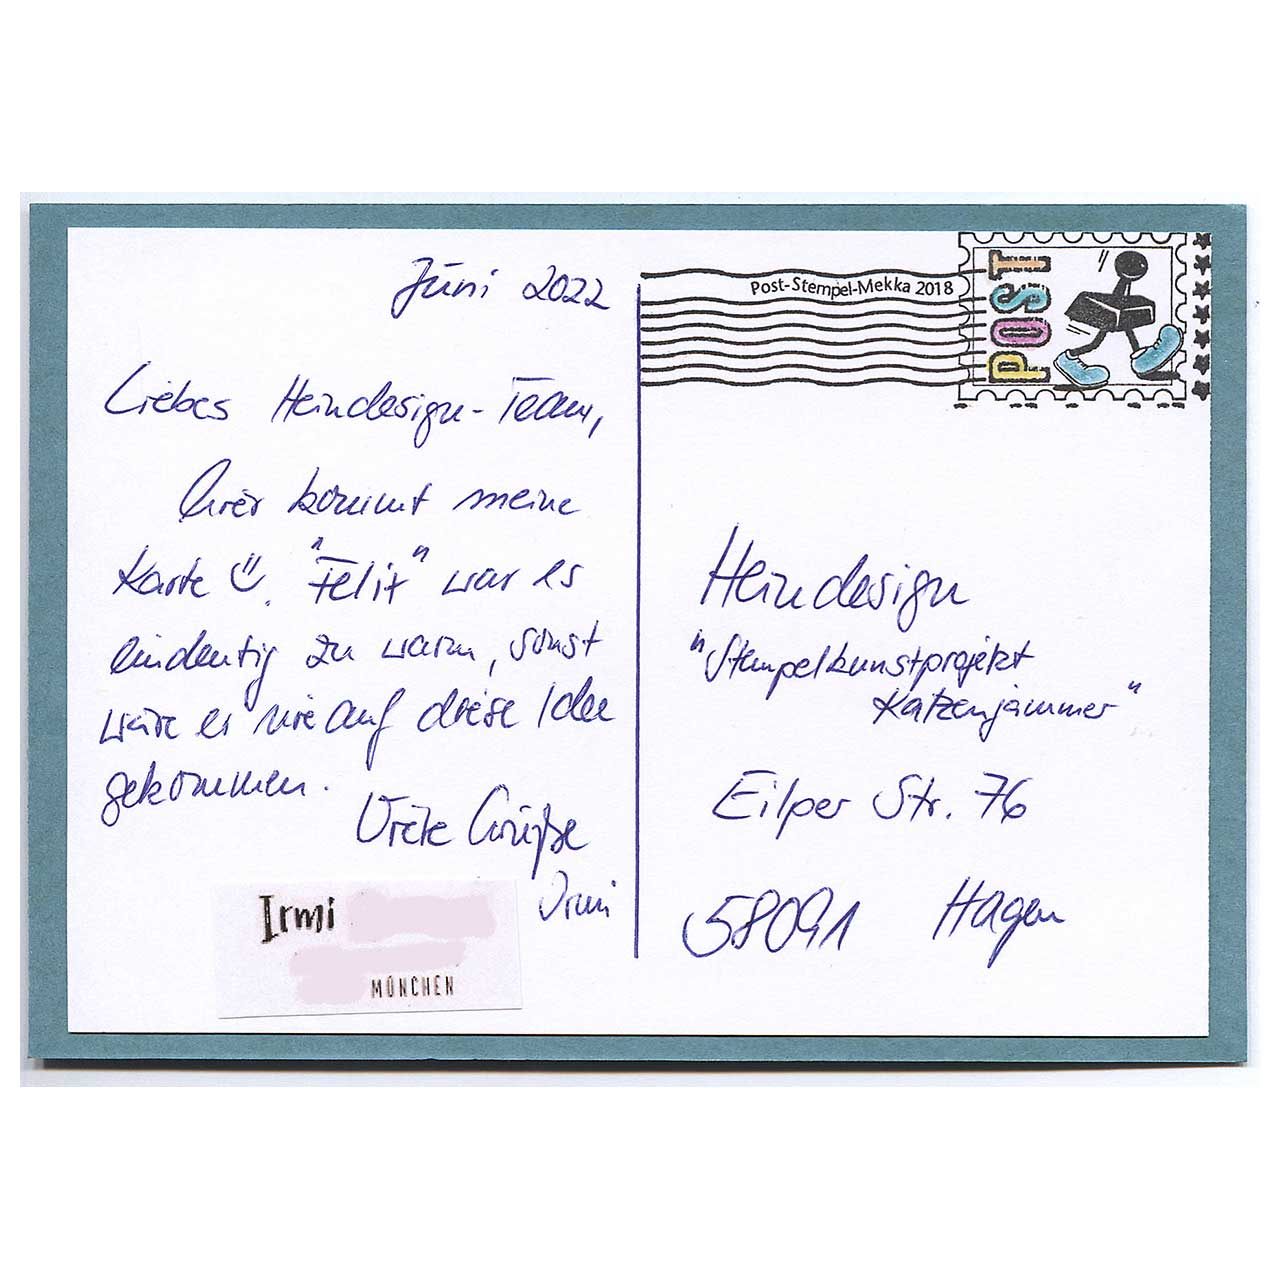 Juni 2022
Liebes Heindesign-Team,
hier kommt meine
Karte ☺. "Felix" war es
eindeutig zu warm, sonst
wäre er nie auf diese Idee
gekommen.
Viele Grüße
Irmi
Irmi
MÜNCHEN
Post-Stempel-Mekka 2018
POST
Heindesign
"Stempelkunstprojekt
Katzenjammer"
Eilper Str. 76
58091 Hagen